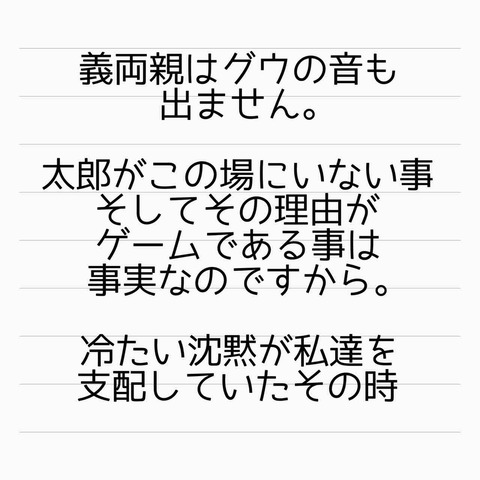 義両親はグウの音も
出ません。
太郎がこの場にいない事
そしてその理由が
ゲームである事は
事実なのですから。
冷たい沈黙が私達を
支配していたその時